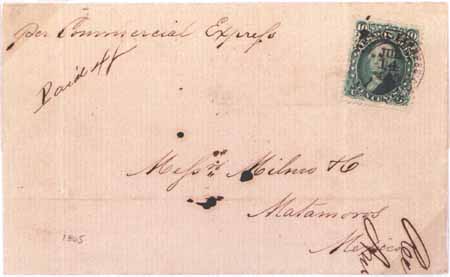 per Commercial Express
Paid
JUL
14
10 10
Messrs Milmo & Co
Matamoros
Mexico
1865